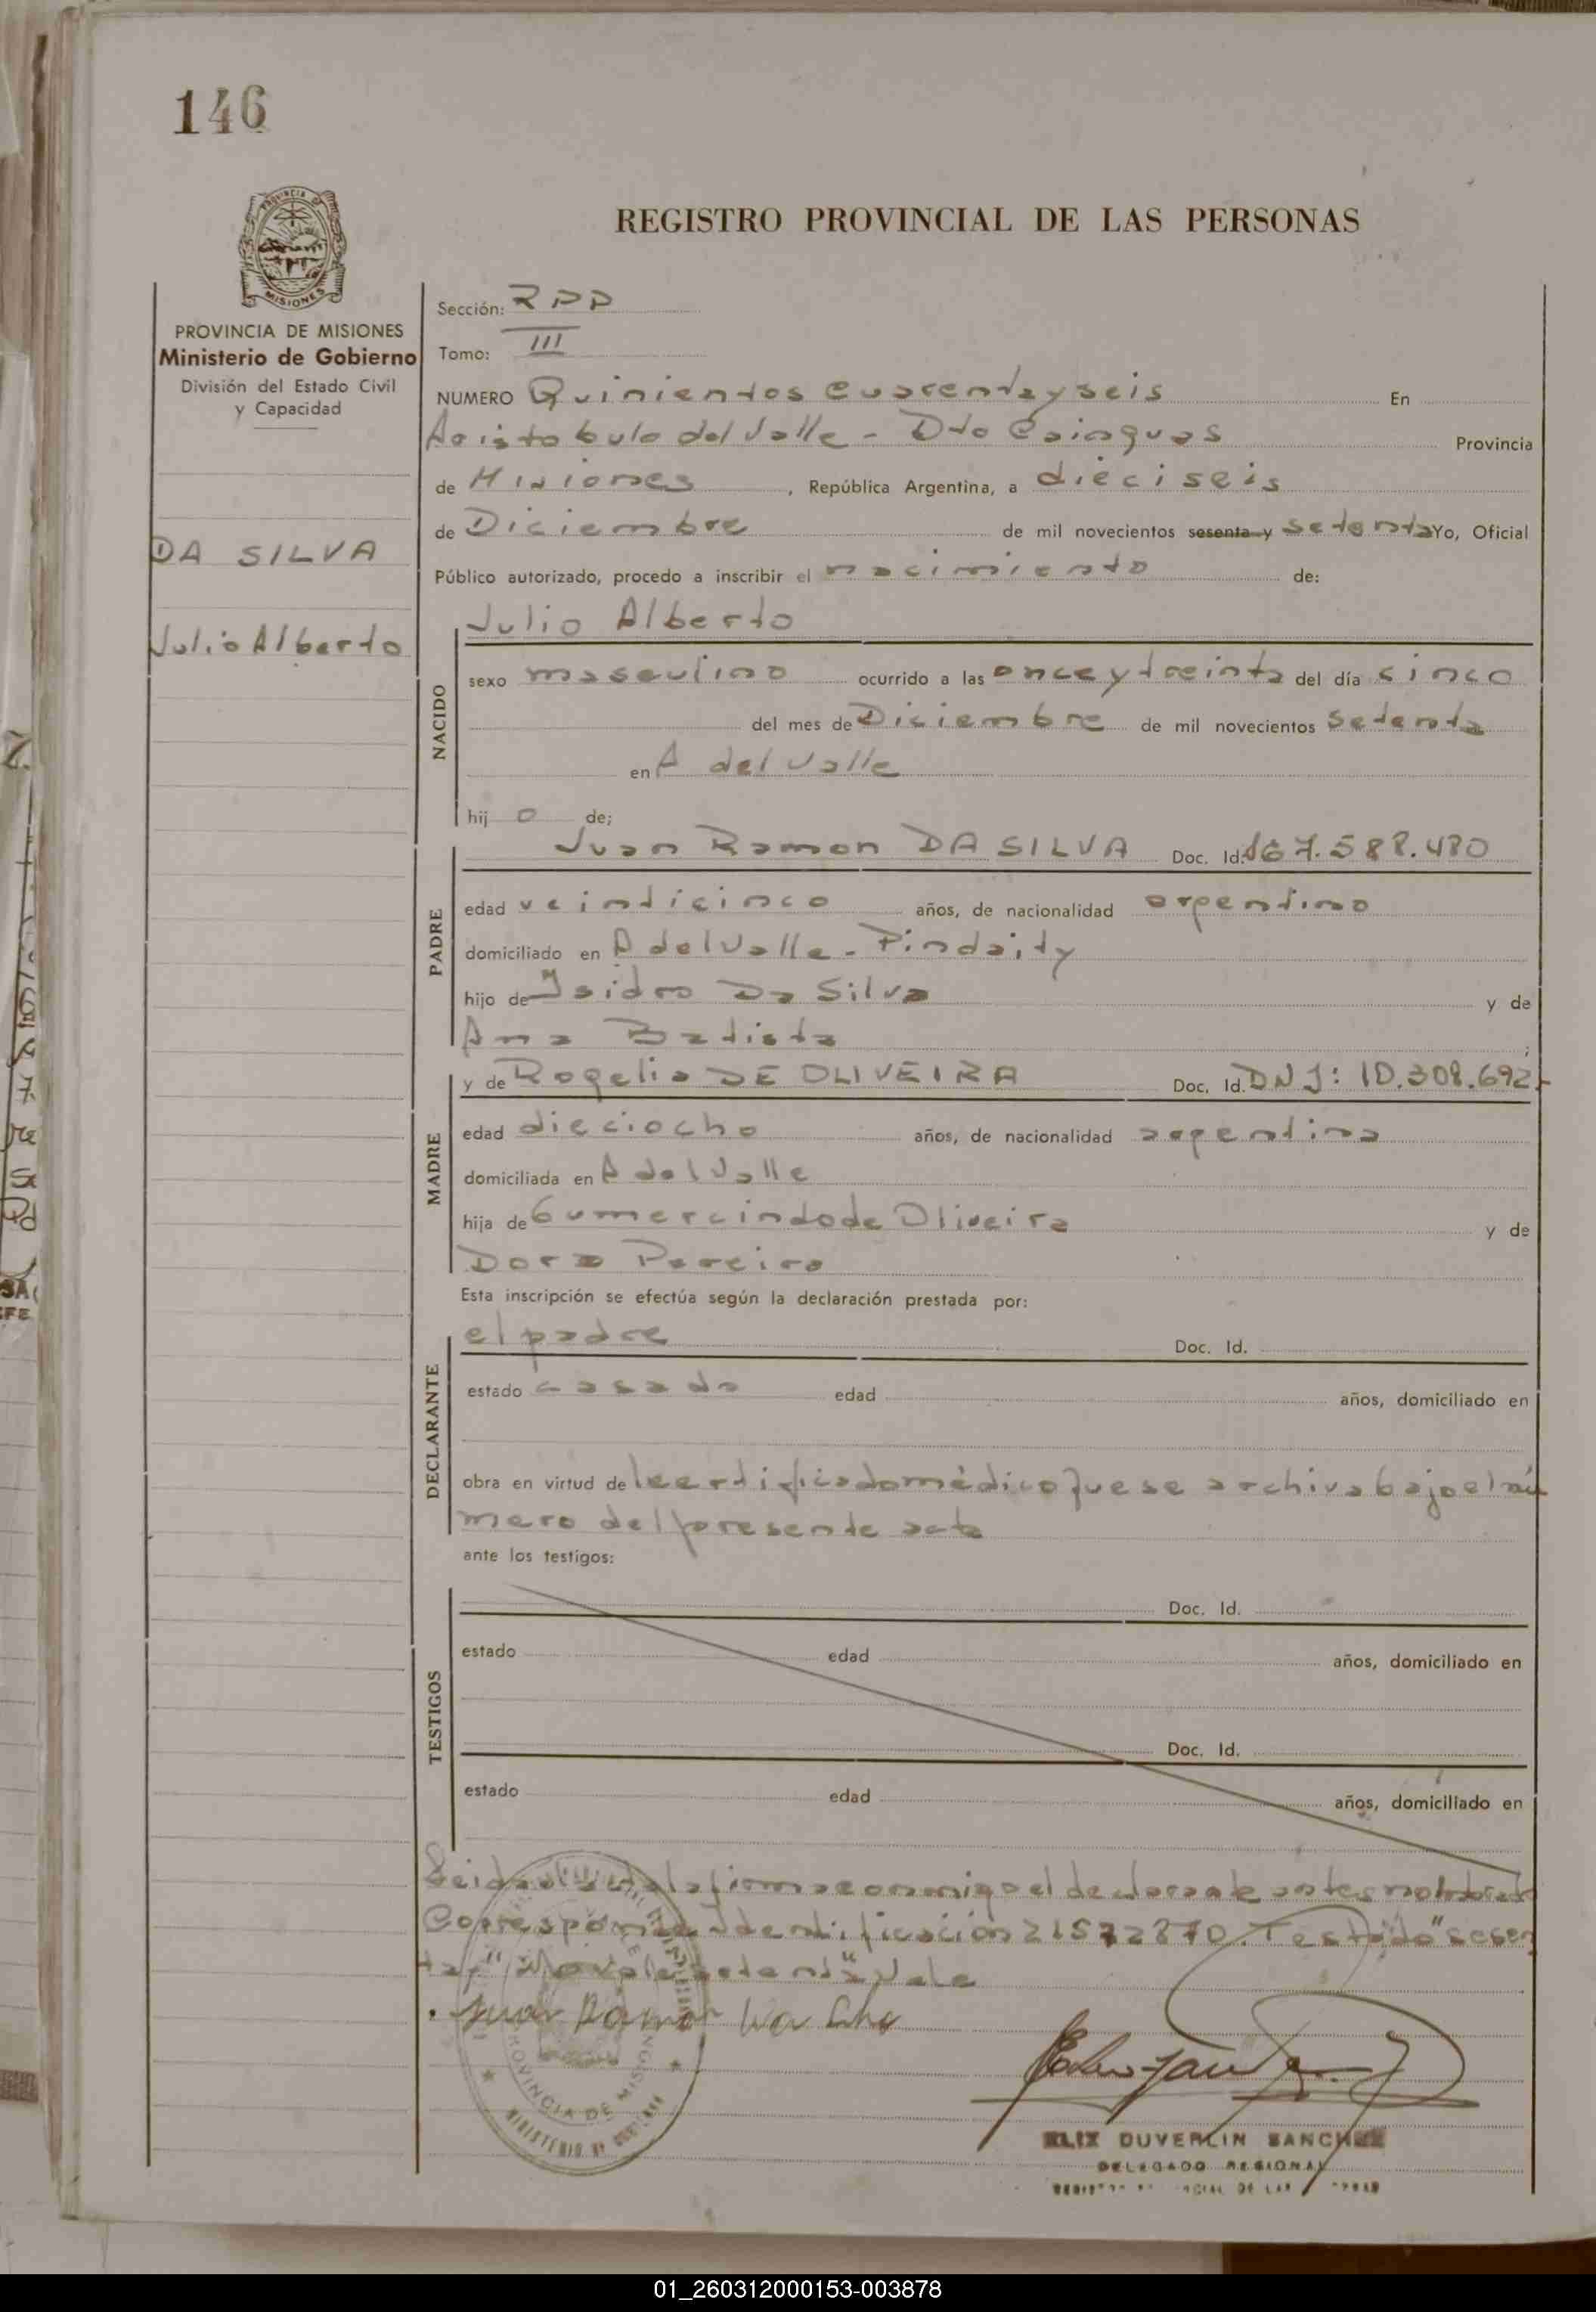 146
REGISTRO PROVINCIAL DE LAS PERSONAS
PROVINCIA DE MISIONES
Ministerio de Gobierno
División del Estado Civil
y Capacidad
DA SILVA
Julio Alberto
Sección: RPP
Tomo: III
NUMERO Quinientos cuarenta y seis En
Aristobulo del Valle - Dto Cainguas Provincia
de Misiones, República Argentina, a dieciseis
de Diciembre de mil novecientos sesenta y setenta Yo, Oficial
Público autorizado, procedo a inscribir el nacimiento de:
NACIDO
Julio Alberto
sexo masculino ocurrido a las once y treinta del día cinco
del mes de Diciembre de mil novecientos setenta
en A del Valle
hij o de;
PADRE
Juan Ramon DA SILVA Doc. Id.
edad veinticinco años, de nacionalidad argentino
domiciliado en A del Valle - Pindaity
hijo de Isidro Da Silva y de
Ana Batista ;
MADRE
y de Rogelia DE OLIVEIRA Doc. Id. DNI: 10.308.692
edad dieciocho años, de nacionalidad argentina
domiciliada en A del Valle
hija de Gumercindo de Oliveira y de
Dora Pereira
Esta inscripción se efectúa según la declaración prestada por:
DECLARANTE
el padre Doc. Id.
estado casado edad años, domiciliado en
obra en virtud del certificado médico que se archiva bajo el nú
mero del presente acta
ante los testigos:
TESTIGOS
Doc. Id.
estado edad años, domiciliado en
Doc. Id.
estado edad años, domiciliado en
Leida el acta la firma conmigo el declarante antes nombrado
Corresponde Identificación 21572870. Testado "sesen
ta y" No vale "setenta" Vale
Juan Ramon
PROVINCIA DE MISIONES
MINISTERIO DE GOBIERNO
ELIX DUVERLIN SANCHEZ
DELEGADO REGIONAL
01_260312000153-003878